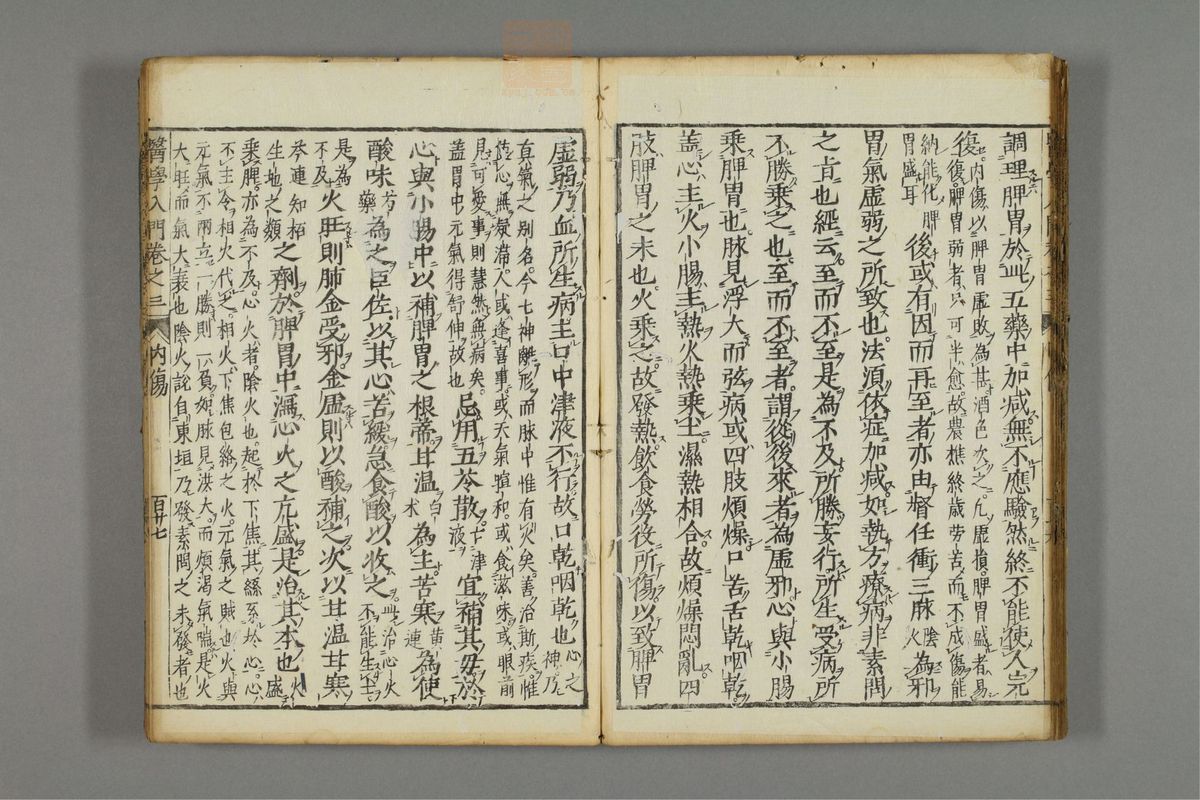 調理脾胃於此五藥中加減無不應驗然終不能使人完
復復內傷以脾胃虛敗為甚酒色次之凡虛損脾胃盛者易
脾胃弱者只可半愈故農樵終歲勞苦而不成傷能
納能化脾
胃盛耳
後或有因而再至者亦由督任衝三脉陰火為邪
胃氣虛弱之所致也法須依症加減如執方療病非素問
之旨也經云至而不至是為不及所勝妄行所生受病所
不勝乘之也至而不至者謂從後來者為虛邪心與小腸
乘脾胃也脉見浮大而弦病或四肢煩燥口苦舌乾咽乾
盖心主火小腸主熱火熱乘土濕熱相合故煩燥悶亂四
肢脾胃之末也火乘之故發熱飲食勞役所傷以致脾胃
虛弱乃血所生病主口中津液不行故口乾咽乾也心之神乃
真氣之別名今七神離形而脉中惟有火矣善治斯疾惟
心無凝滯人或逢喜事或天氣暄和或食滋味或眼前
見可愛事則慧然無病矣
蓋胃中元氣得舒伸故也
忌用五苓散亡津液宜補其母於
心與小腸中以補脾胃之根蒂甘溫白术為主苦寒黃連為使
酸味方藥為之臣佐以其心苦緩急食酸以收之此治心火不能生土
是為不及火旺則肺金受邪金虛則以酸補之次以甘溫甘寒
芩連知栢
生地之類
之劑於脾胃中瀉心火之亢盛是治其本也火盛
乘脾亦為不及心火者陰火也起於下焦其絲系於心心
不主令相火代之相火下焦包絡之火元氣之賊也火與
元氣不兩立一勝則一負如脉見洪大而煩渴氣喘是火
大旺而氣大衰也陰火說自東垣乃發素問之未發者也
醫學入門卷之三
內傷
百廿七